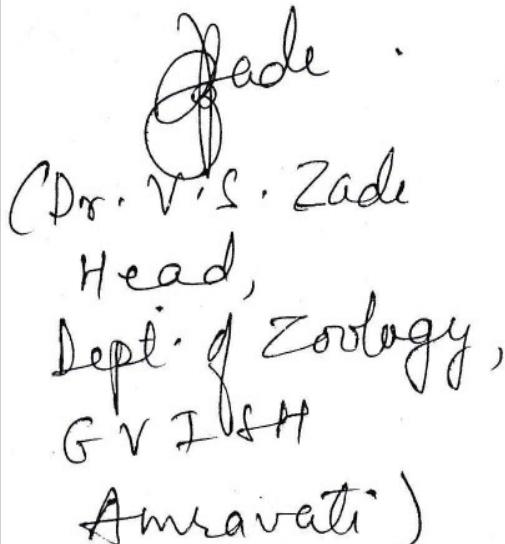 Zade
(Dr. V.S. Zade
Head,
Dept. of Zoology,
GVISH
Amravati)